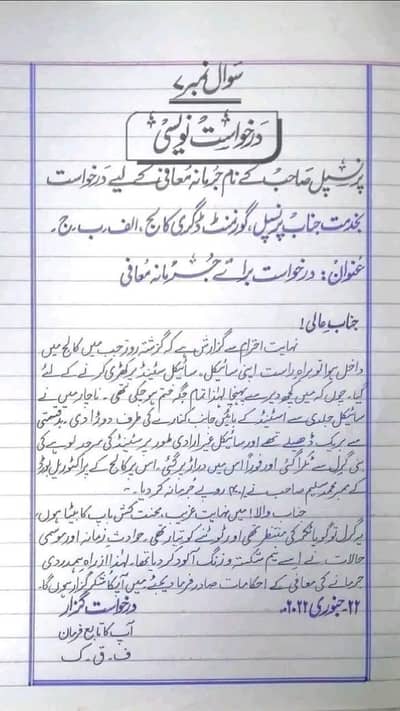 سوال نمبر ۷
درخواست نویسی
پرنسپل صاحب کے نام جرمانہ معافی کے لیے درخواست
بخدمت جناب پرنسپل، گورنمنٹ ڈگری کالج، الف۔ب۔ج۔
عنوان: درخواست برائے جرمانہ معافی
جناب عالی!
نہایت احترام سے گزارش ہے کہ گزشتہ روز جب میں کالج میں
داخل ہوا تو براہ راست اپنی سائیکل، سائیکل سٹینڈ پر کھڑی کرنے کے لئے
گیا۔ چوں کہ میں کچھ دیر سے پہنچا لہٰذا تمام جگہ ختم ہو چکی تھی۔ ناچار میں نے
سائیکل جلدی سے اسٹینڈ کے بائیں جانب کنارے کی طرف دوڑا دی۔ بدقسمتی
سے بریک ڈھیلے تھے اور سائیکل غیر ارادی طور پر سٹینڈ کی سرحد لوہے کی
بنی گرل سے ٹکرا گئی اور فوراً اس میں دراڑ پڑ گئی۔ اس پر کالج کے پراکٹوریل بورڈ
کے ممبر محمد سلیم صاحب نے ۳۰۱ روپے جُرمانہ کر دیا۔
جناب والا! میں نہایت غریب، محنت کش باپ کا بیٹا ہوں
یہ گرل تو گویا ٹکر کی منتظر تھی اور ٹوٹنے کو تیار تھی۔ حوادثِ زمانہ اور موسمی
حالات نے اسے نیم شکستہ و زنگ آلود کر دیا تھا۔ لہٰذا از راہِ ہمدردی
جرمانے کی معافی کے احکامات صادر فرما دیجئے میں آپ کا شکر گزار ہوں گا۔
۲۲۔ جنوری ۲۰۲۲ء درخواست گزار
آپ کا تابع فرمان
ف۔ ق۔ ک